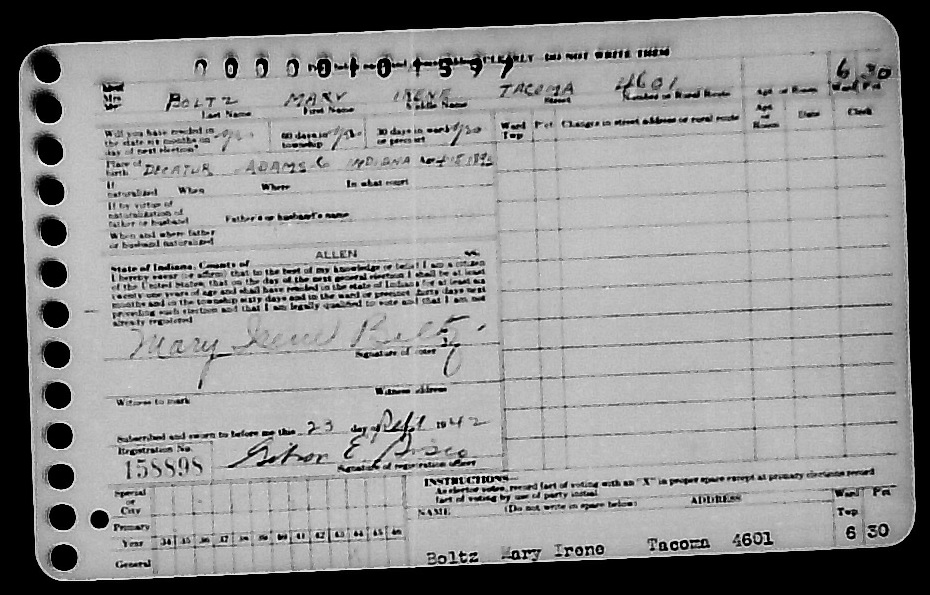 CLEARLY DO NOT WRITE THEM
0000010 1597
6 30
Mrs BOLTZ MARY IRENE TACOMA 4601 Apt. or Room Ward Pct
Last Name First Name Middle Name Street Number or Rural Route
Will you have resided in the state six months on day of next election? yes 60 days in township yes 30 days in ward or precinct yes
Ward Twp Pct Changes in street address or rural route Apt or Room Date Clerk
Place of birth DECATUR ADAMS Co INDIANA Age
If naturalized When Where In what court
If by virtue of naturalization of father or husband Father's or husband's name
When and where father or husband naturalized
State of Indiana, County of ALLEN ss.
I hereby swear (or affirm) that to the best of my knowledge or belief I am a citizen
of the United States, that on the day of the next general election I shall be at least
twenty-one years of age and shall have resided in the state of Indiana for at least six
months and in the township sixty days and in the ward or precinct thirty days next
preceding such election and that I am legally qualified to vote and that I am not
already registered
Mary Irene Boltz
Signature of voter
Witness to mark Witness address
Subscribed and sworn to before me this 23 day of Sept 1942
Registration No.
158898
Signature of registration officer
INSTRUCTIONS—
As elector votes, record fact of voting with an "X" in proper space except at primary elections record
fact of voting by use of party initial.
Special or City
Primary
Year 34 35 36 37 38 39 40 41 42 43 44 45 46
General
NAME (Do not write in space below) ADDRESS Ward Twp Pct
Boltz Mary Irene Tacoma 4601 6 30